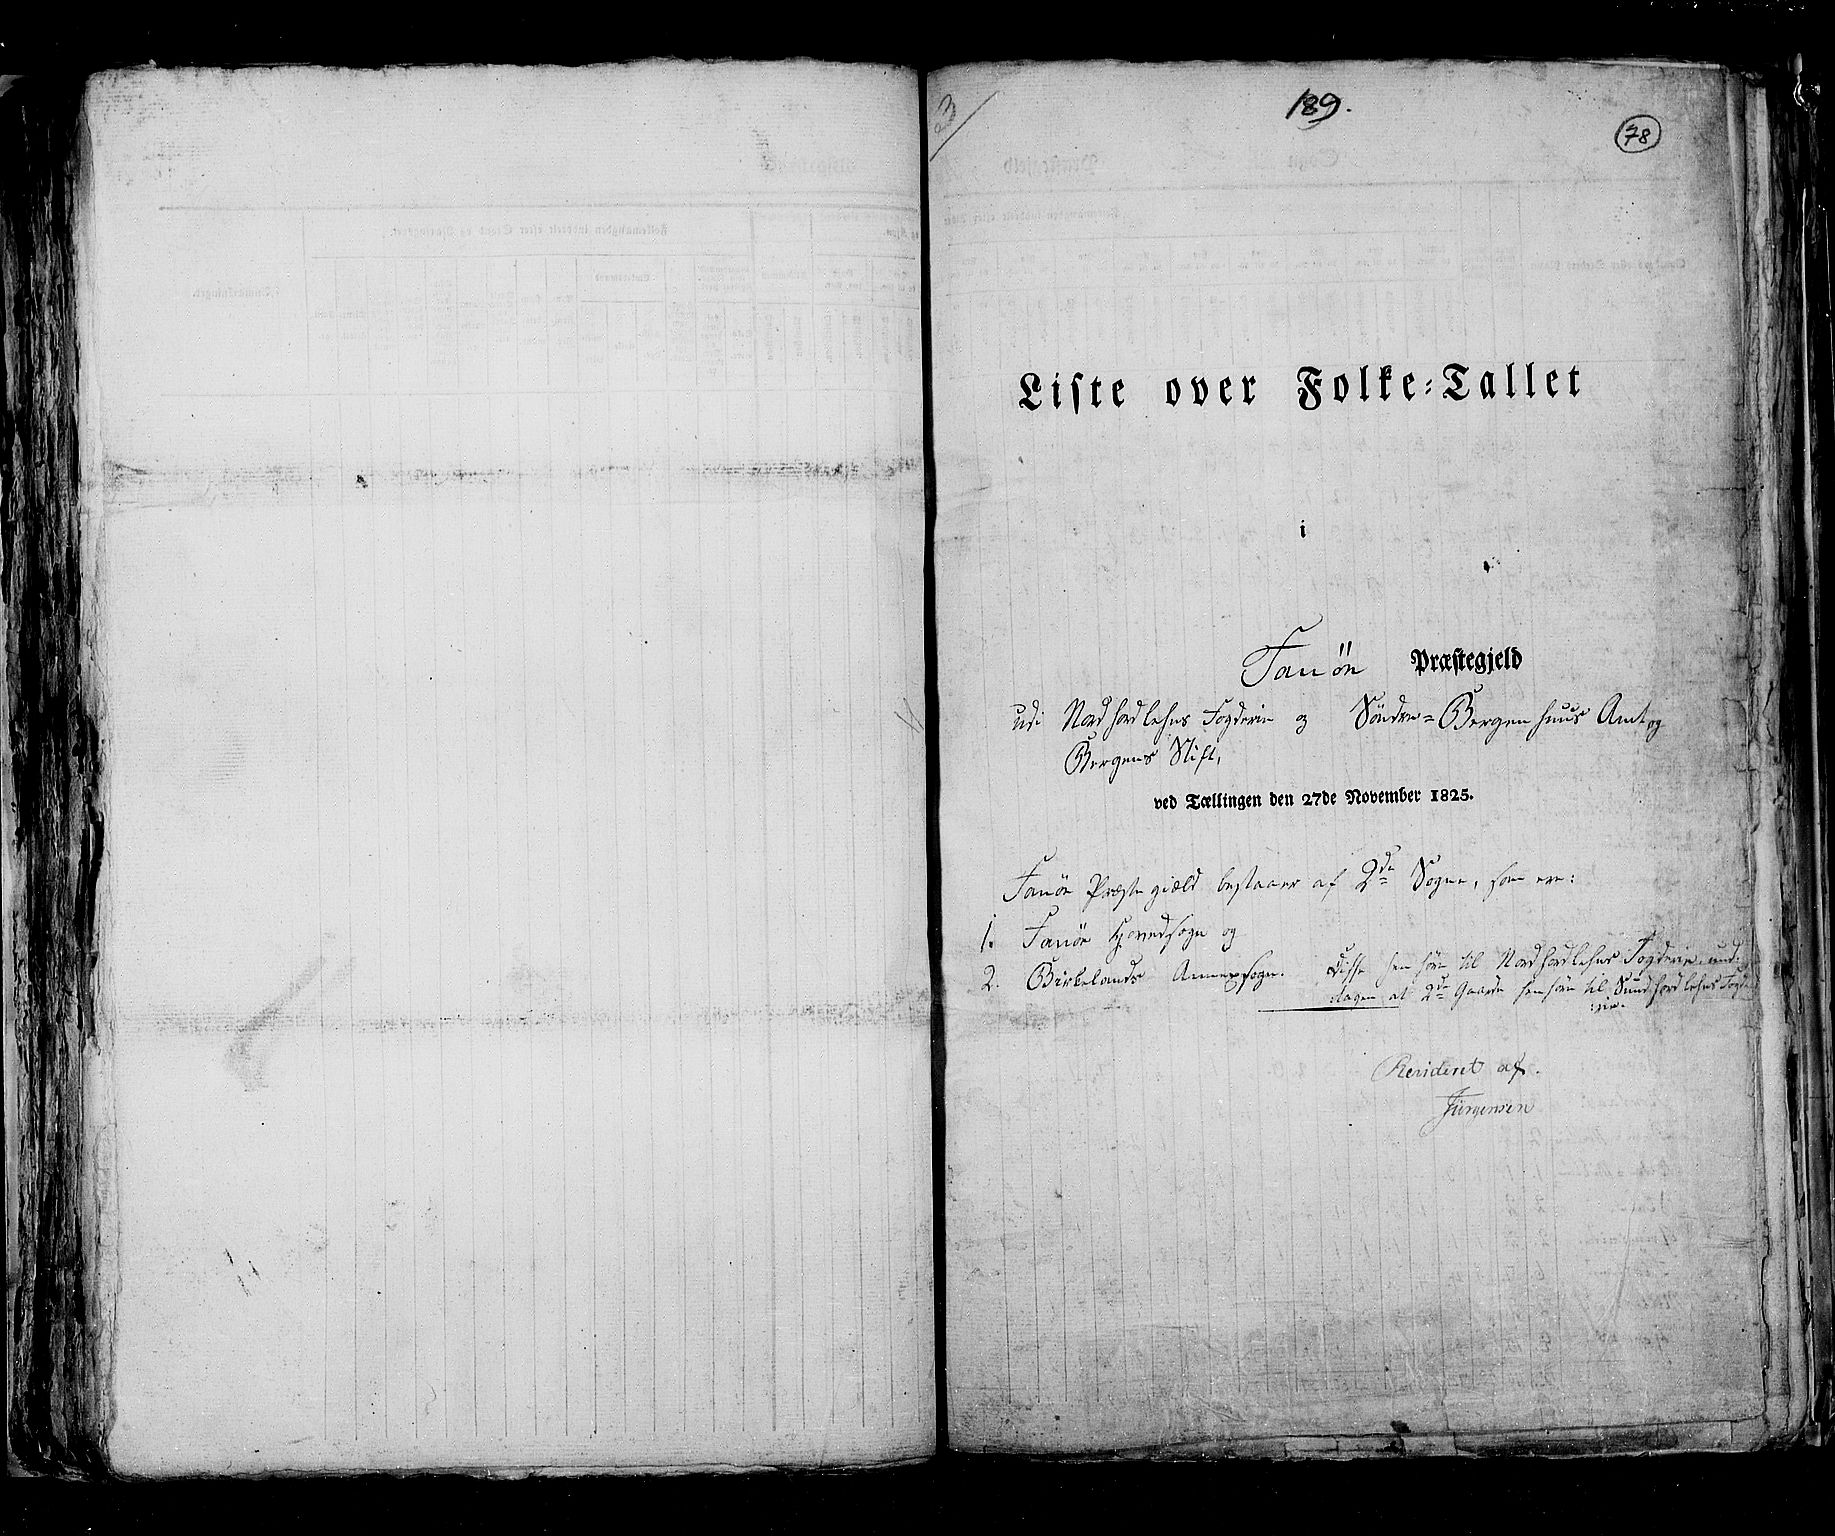 23
189.
78
Liste over Folke-Tallet
i
Fanöe Præstegjeld
udi Nordhordlehns Fogderie og Söndre-Bergenhuus Amt og
Bergens Stift,
ved Tællingen den 27de November 1825.
Fanöe Præstegiæld bestaaer af 2de Sogne, som ere:
1. Fanöe Hovedsogn og
2. Birkelands Annexsogn. Disse henhöre til Nordhordlehns Fogderie, und-
tagen at 2de Gaarde henhöre til Sundhordlehns Fogde-
rie.
Revideret af.
Jürgensen